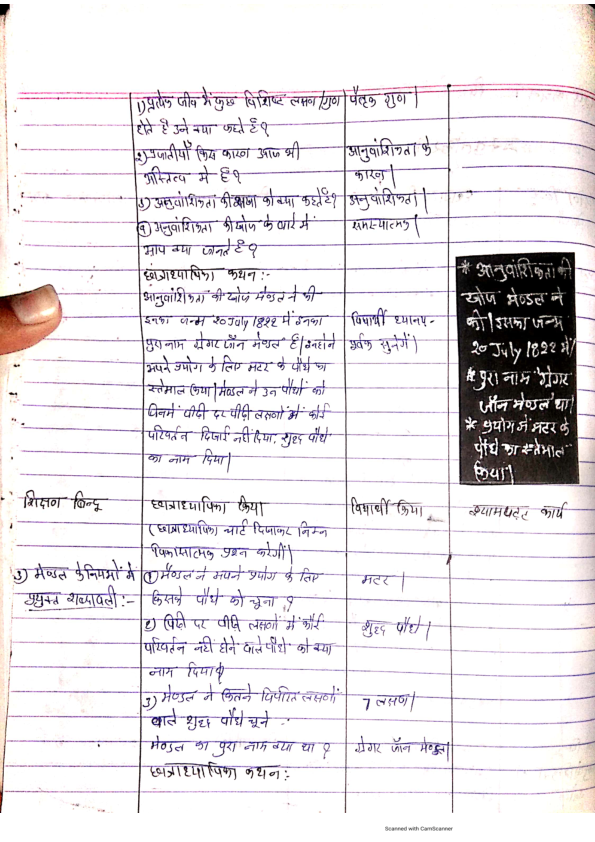 1) प्रत्येक जीव में कुछ विशिष्ट लक्षण/गुण
होते हैं उने क्या कहते हैं?
पैतृक गुण|
2) प्रजातीयाँ किस कारण आज भी
अस्तित्व में है?
आनुवांशिकता के
कारण|
3) अनुवांशिकता की शाखा को क्या कहते हैं?
अनुवांशिकता|
④ अनुवांशिकता की खोज के बारे में
आप क्या जानते है?
समस्यात्मक|
छात्राध्यापिका कथन:-
आनुवांशिकता की खोज मेण्डल ने की
इनका जन्म 20 July 1822 में इनका
पुरा नाम ग्रेगर जॉन मेण्डल है| इन्होने
अपने प्रयोग के लिए मटर के पौधे का
स्तेमाल किया| मेण्डल ने उन पौधों को
जिनमें पीढी दर पीढी लक्षणों में कोई
परिवर्तन दिखाई नहीं दिया, शुद्ध पौधे
का नाम दिया|
विद्यार्थी ध्यानपू-
र्वक सुनेगें|
* आनुवांशिकता की
खोज मेण्डल ने
की| इसका जन्म
20 July 1822 में
* पुरा नाम ग्रेगर
जॉन मेण्डल था|
* प्रयोग में मटर के
पौधे का स्तेमाल
किया|
शिक्षण बिन्दू
छात्राध्यापिका क्रिया
विद्यार्थी क्रिया
श्यामपट्ट कार्य
(छात्राध्यापिका चार्ट दिखाकर निम्न
विकासात्मक प्रश्न करेगीं|
3) मेण्डल के नियमों में
प्रयुक्त शब्दावली:-
① मेण्डल ने अपने प्रयोग के लिए
किसके पौधे को चूना ?
मटर |
2) पिढी दर पीढि लक्षणों में कोई
परिवर्तन नहीं होने वाले पौधे को क्या
नाम दिया?
शुद्ध पौधे|
3) मेण्डल ने कितने विपरित लक्षणों
वाले शुद्ध पौधे चूने
7 लक्षण|
मेण्डल का पुरा नाम क्या था ?
ग्रेगर जॉन मेण्डल|
छात्राध्यापिका कथन:
Scanned with CamScanner